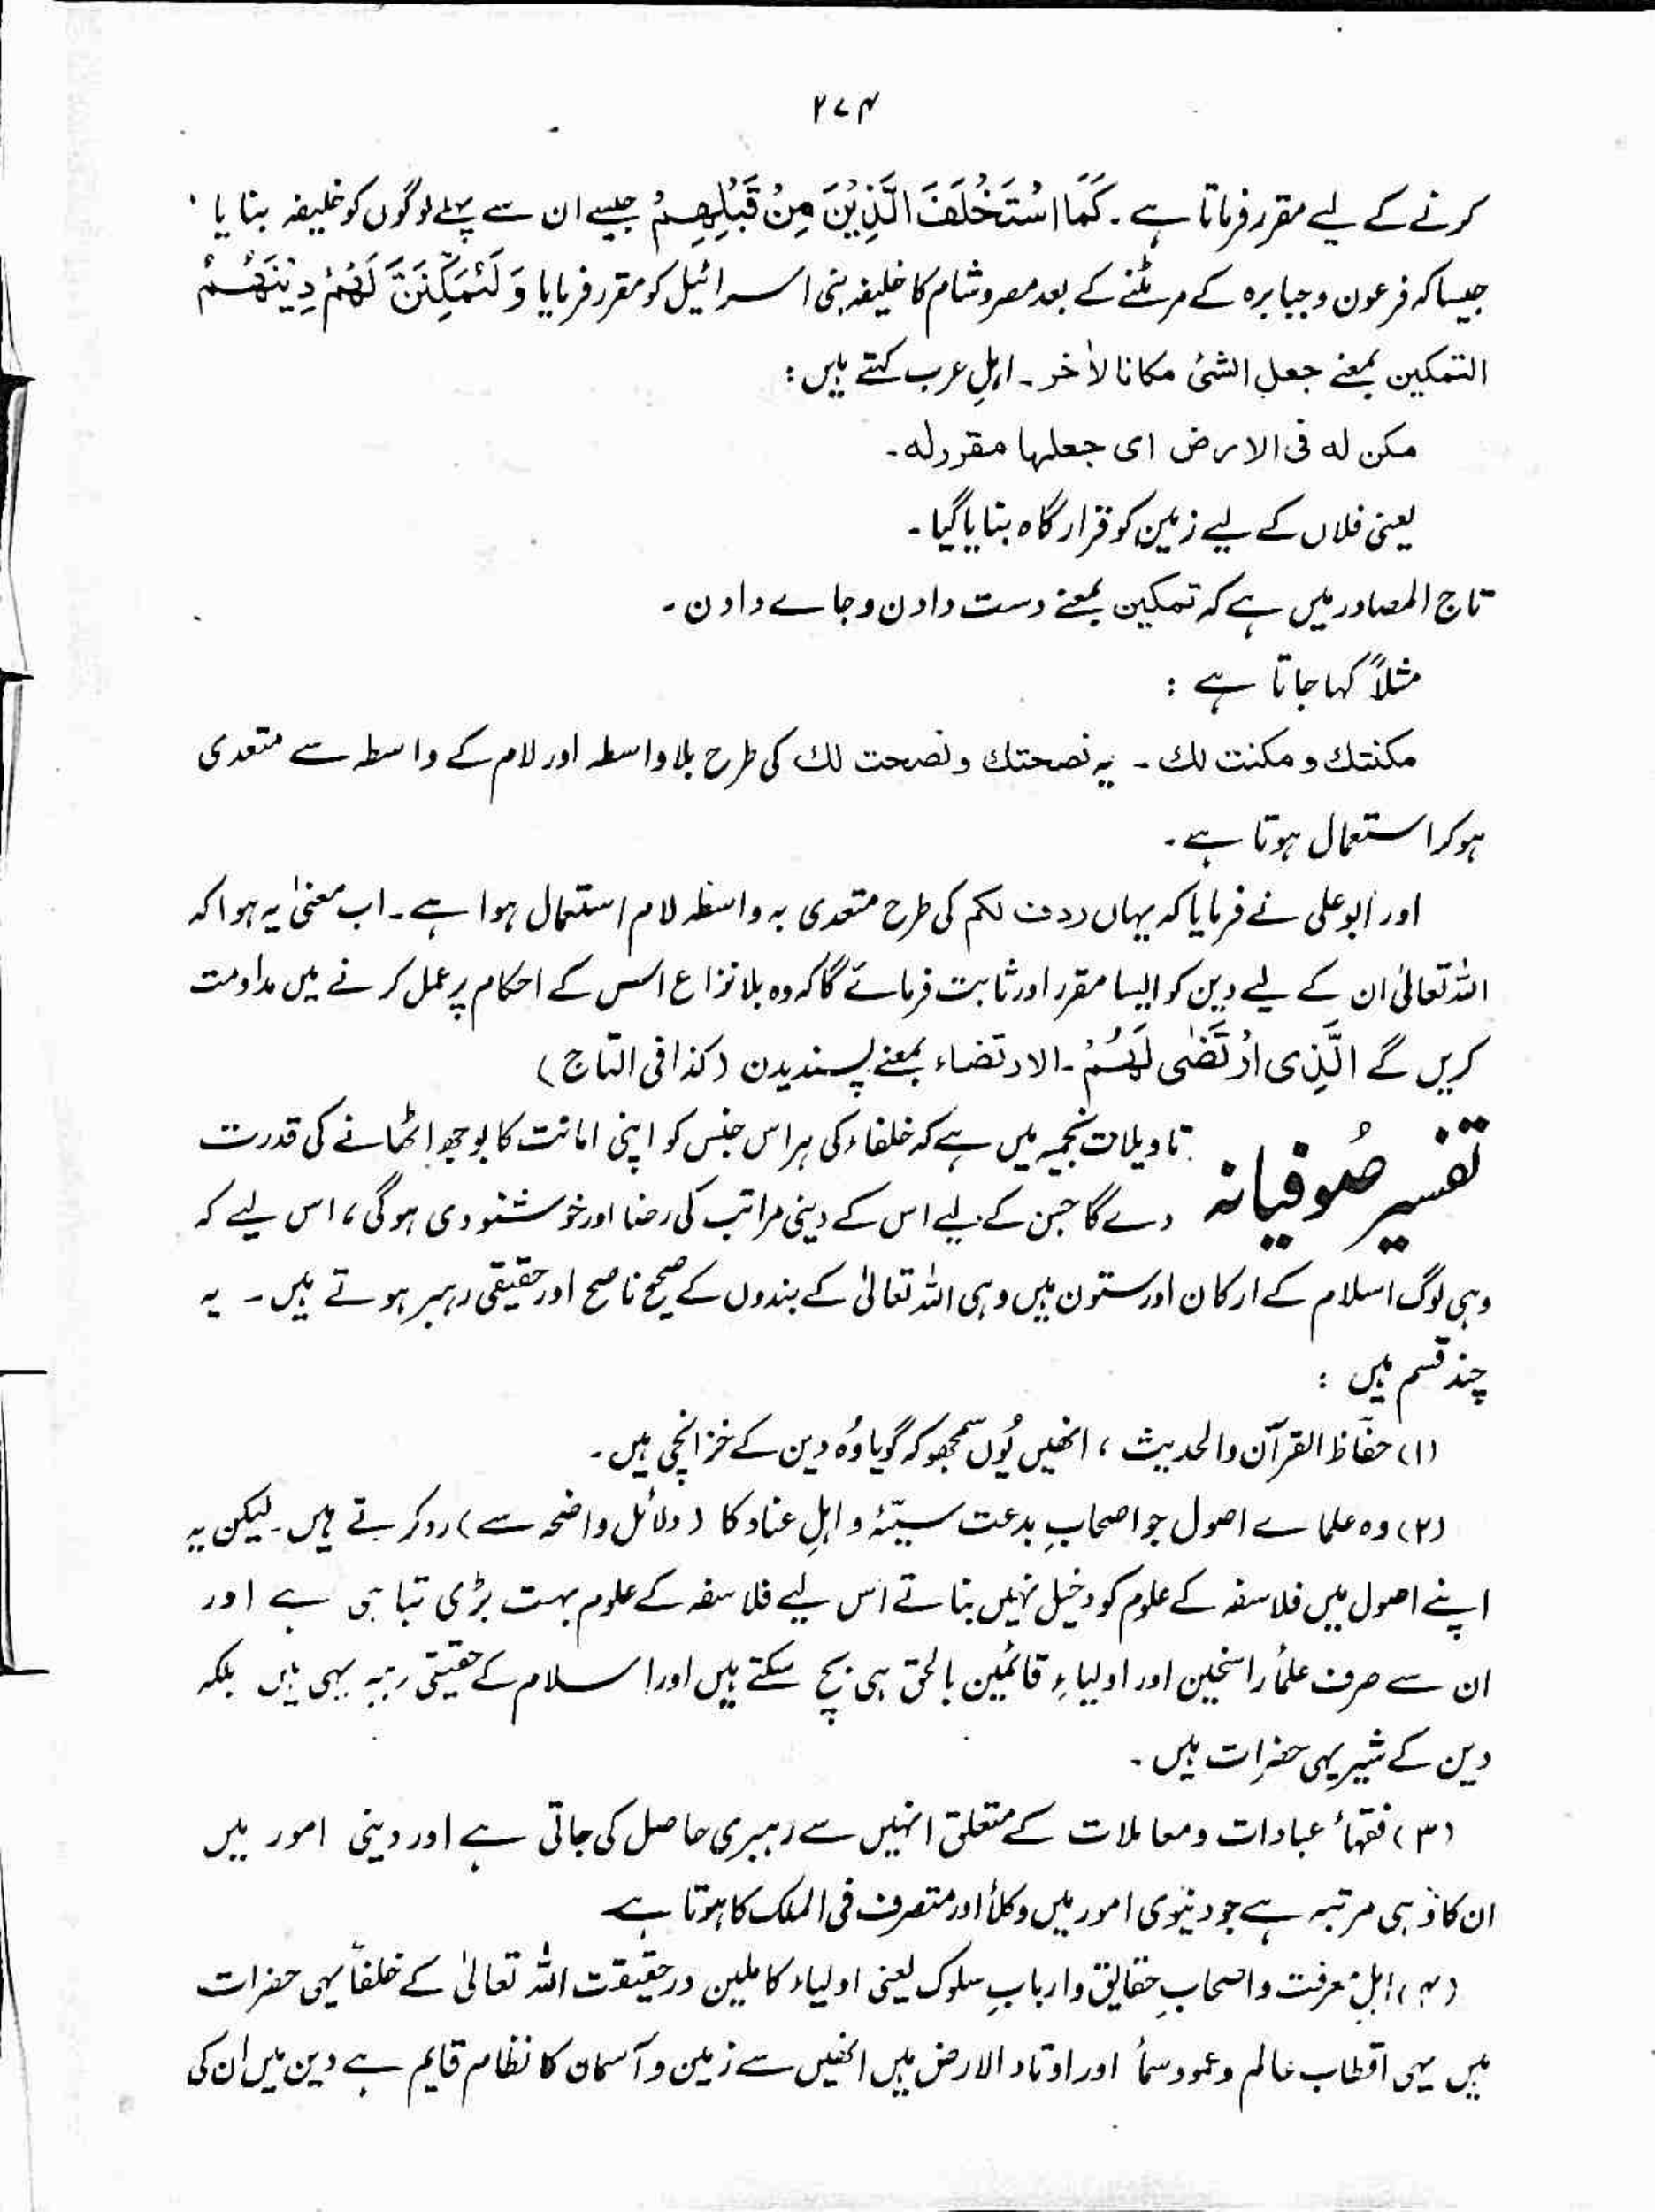 ۲۷۴
کرنے کے لیے مقرر فرماتا ہے۔ کَمَا اسْتَخْلَفَ الَّذِیْنَ مِنْ قَبْلِهِمْ جیسے ان سے پہلے لوگوں کو خلیفہ بنایا،
جیسا کہ فرعون و جبابرہ کے مر مٹنے کے بعد مصر و شام کا خلیفہ بنی اسرائیل کو مقرر فرمایا وَ لَیُمَکِّنَنَّ لَهُمْ دِیْنَهُمْ
التمکین بمعنے جعل الشئ مکانا لاٰخر۔ اہلِ عرب کہتے ہیں :
مکن له فی الارض ای جعلها مقرر له۔
یعنی فلاں کے لیے زمین کو قرار گاہ بنایا گیا۔
تاج المصادر میں ہے کہ تمکین بمعنے دست دادن و جاے دادن۔
مثلاً کہا جاتا ہے :
مکنتك و مکنت لك۔ یہ نصحتك و نصحت لك کی طرح بلا واسطہ اور لام کے واسطہ سے متعدی
ہو کر استعمال ہوتا ہے۔
اور ابو علی نے فرمایا کہ یہاں ردف لکم کی طرح متعدی بہ واسطہ لام استعمال ہوا ہے۔ اب معنیٰ یہ ہوا کہ
اللہ تعالیٰ ان کے لیے دین کو ایسا مقرر اور ثابت فرمائے گا کہ وہ بلا نزاع اس کے احکام پر عمل کرنے میں مداومت
کریں گے الَّذِی ارْتَضٰی لَهُمْ۔ الارتضاء بمعنے پسندیدن (کذا فی التاج)
تفسیر صُوفیانہ تاویلات نجمیہ میں ہے کہ خلفاء کی ہر اس جنس کو اپنی امانت کا بوجھ اٹھانے کی قدرت
دے گا جس کے لیے اس کے دینی مراتب کی رضا اور خوشنودی ہوگی، اس لیے کہ
وہی لوگ اسلام کے ارکان اور ستون ہیں وہی اللہ تعالیٰ کے بندوں کے صحیح ناصح اور حقیقی رہبر ہوتے ہیں۔ یہ
چند قسم ہیں :
(۱) حفّاظ القرآن والحدیث، انھیں یُوں سمجھو کہ گویا وُہ دین کے خزانچی ہیں۔
(۲) وہ علماے اصول جو اصحابِ بدعت سیّئہ و اہلِ عناد کا (دلائل واضحہ سے) رد کرتے ہیں۔ لیکن یہ
اپنے اصول میں فلاسفہ کے علوم کو دخیل نہیں بناتے اس لیے فلاسفہ کے علوم بہت بڑی تباہی ہے اور
ان سے صرف علمأ راسخین اور اولیاءِ قائمین بالحق ہی بچ سکتے ہیں اور اسلام کے حقیقی رہبر یہی ہیں بلکہ
دین کے شیر یہی حضرات ہیں۔
(۳) فقہأ عبادات و معاملات کے متعلق انہیں سے رہبری حاصل کی جاتی ہے اور دینی امور میں
ان کا وُہی مرتبہ ہے جو دنیوی امور میں وکلأ اور متصرف فی الملک کا ہوتا ہے
(۴) اہلِ معرفت و اصحابِ حقایق و اربابِ سلوک یعنی اولیاء کاملین درحقیقت اللہ تعالیٰ کے خلفأ یہی حضرات
ہیں یہی اقطاب عالم و عمود سمأ اور اوتاد الارض ہیں انھیں سے زمین و آسمان کا نظام قایم ہے دین میں ان کی